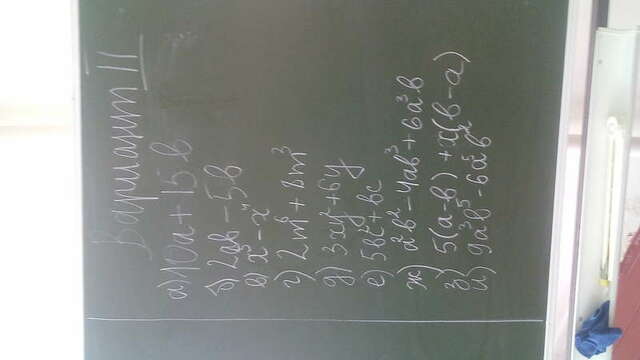 Вариант II
а) 10a + 15b
б) 2ab - 5b
в) x⁵ - x⁴
г) 2m⁶ + 8m³
д) 3xy² + 6y
е) 5bc² + bc
ж) a²b² - 4ab³ + 6a³b
з) 5(a-b) + x(b-a)
и) 9a³b⁵ - 6a⁵b²